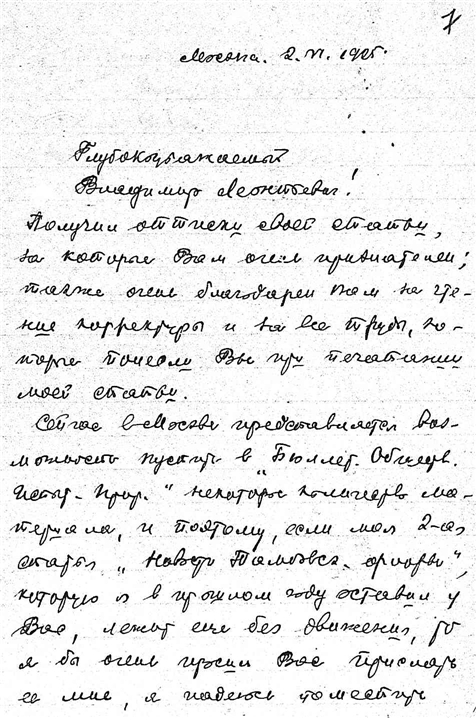 7
Москва. 2. VI. 1925.
Глубокоуважаемый
Владимир Леонтьевич!
Получил оттиски своей статьи,
за которые Вам очень признателен;
также очень благодарен Вам за чте-
ние корректуры и за все труды, ко-
торые понесли Вы при печатании
моей статьи.
Сейчас в Москве представляется воз-
можность пустить в „Бюллет. Общества
Испыт. Прир." некоторое количество ма-
териала, и поэтому, если моя 2-ая
статья „Новости Тамбовск. флоры",
которую я в прошлом году оставил у
Вас, лежит еще без движения, то
я бы очень просил Вас прислать
ее мне, я надеюсь поместить